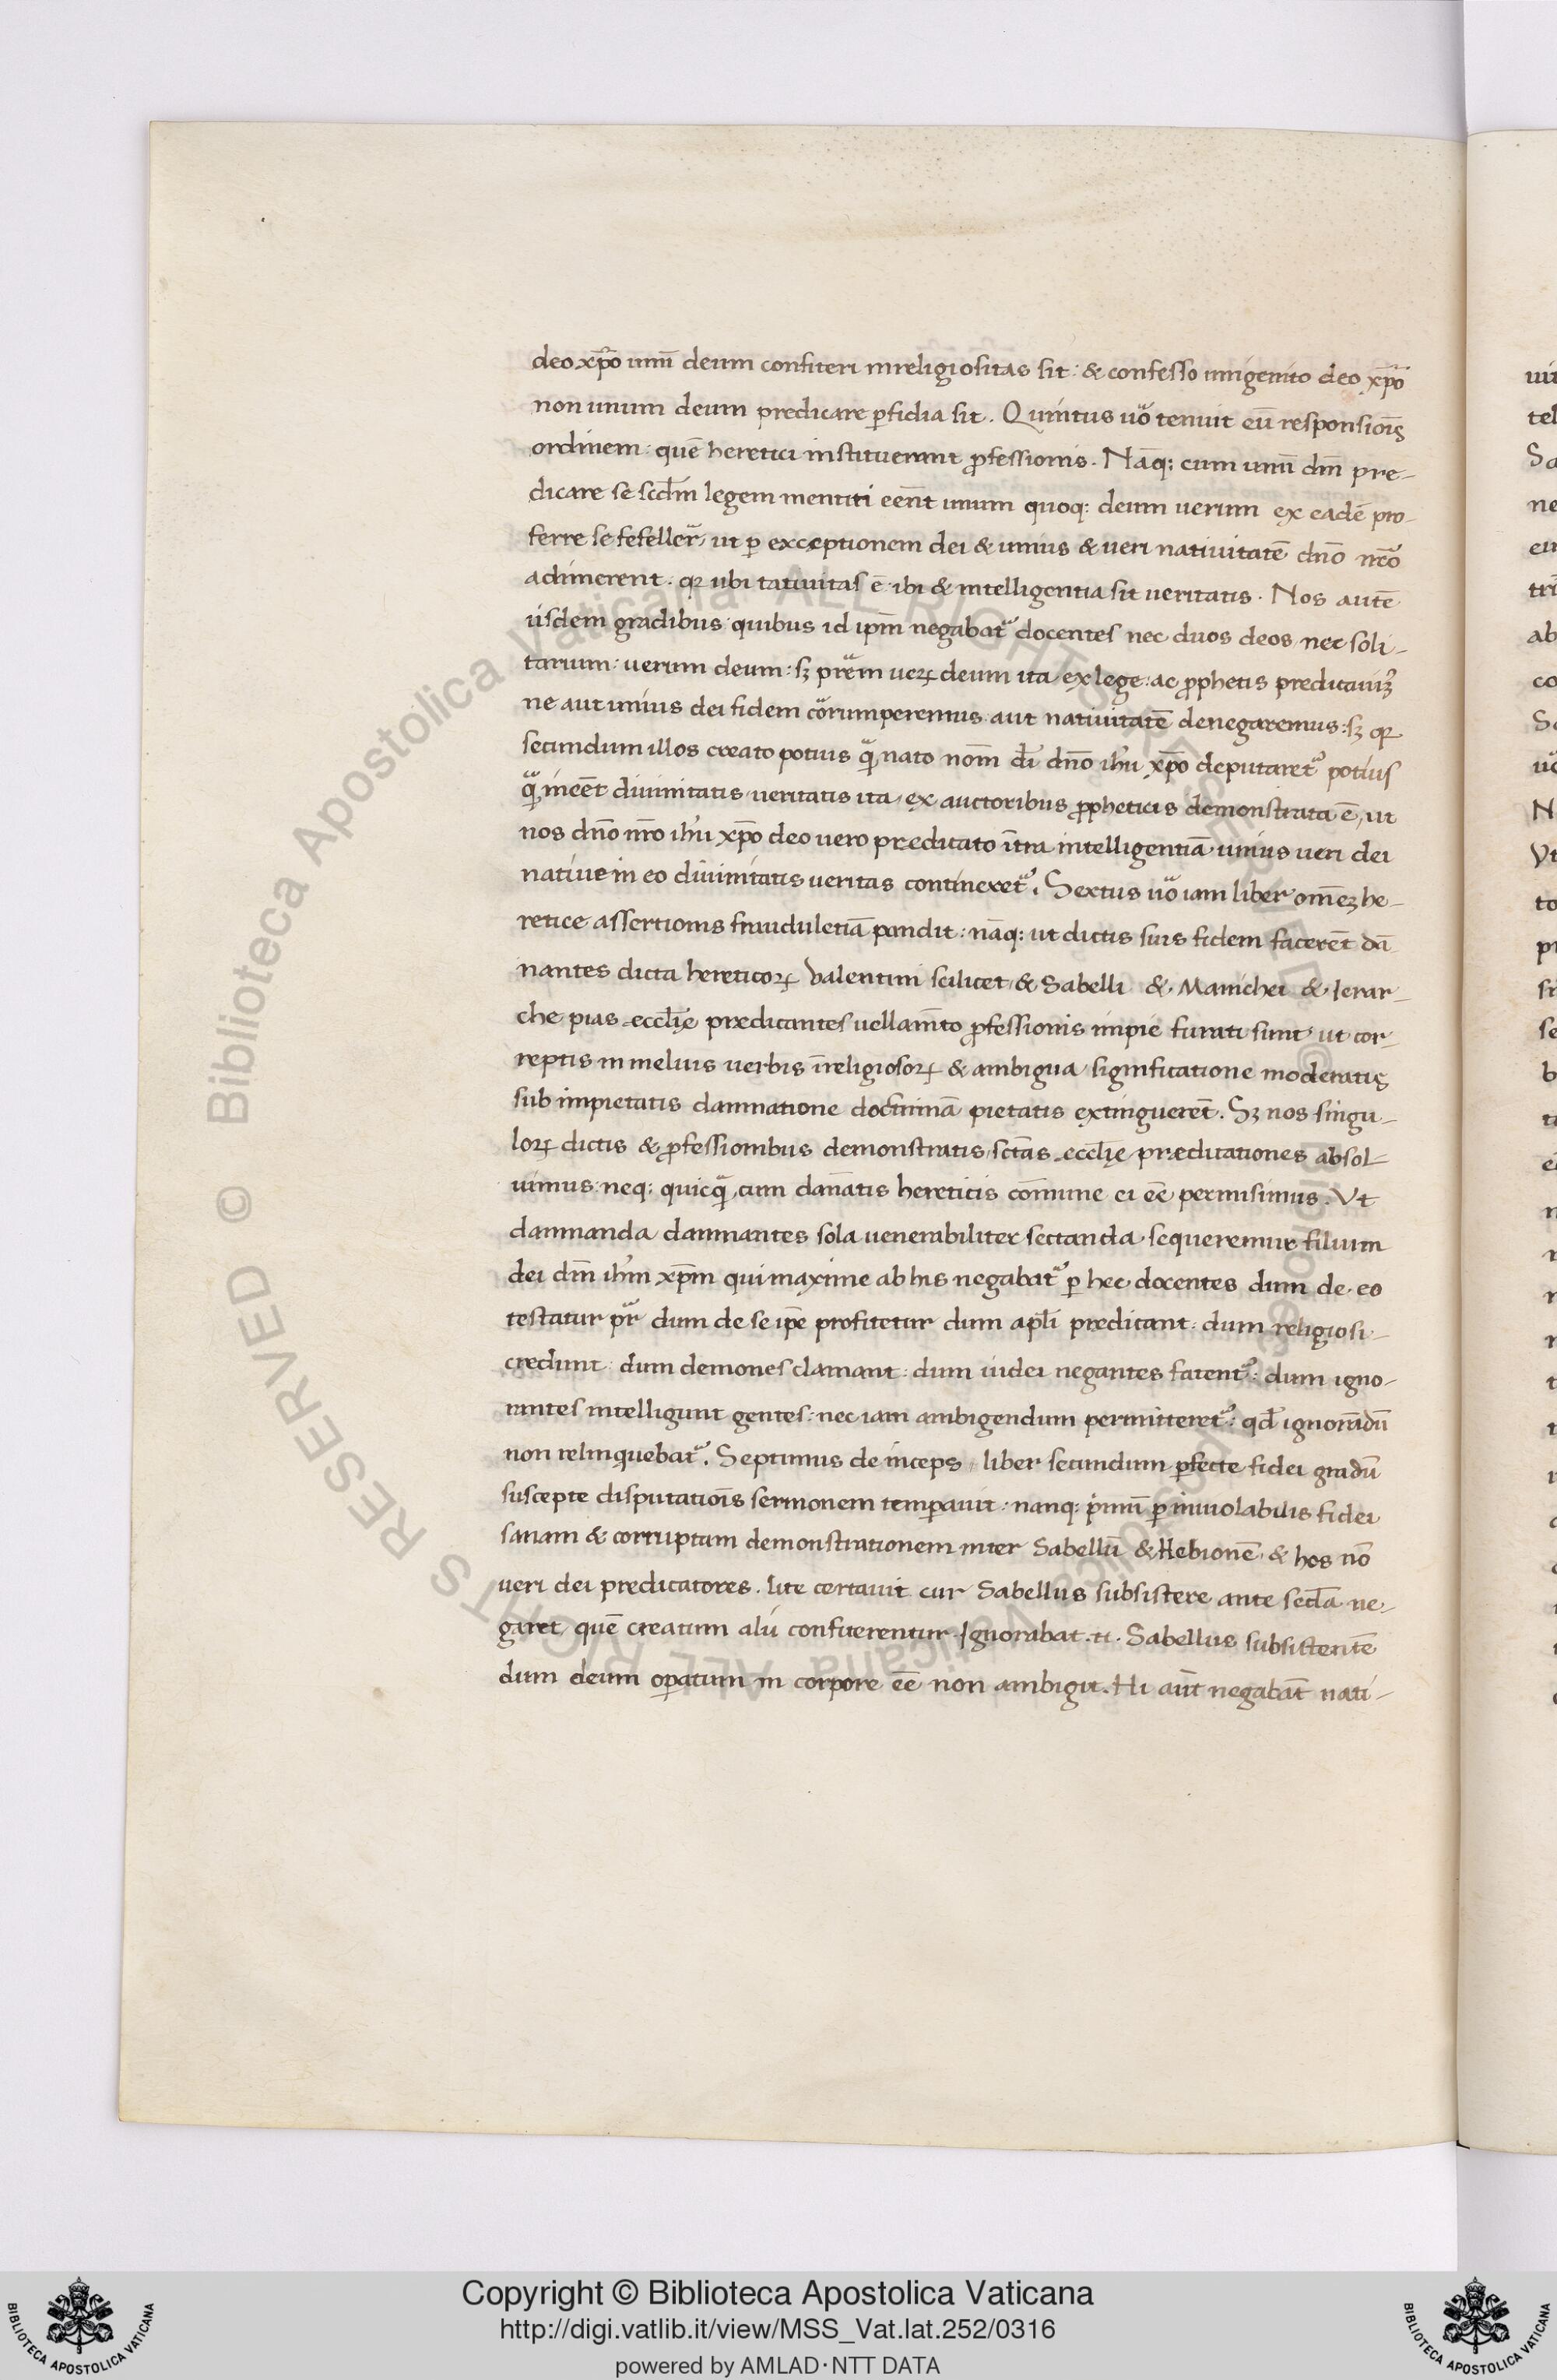 deo xp̄o unū deum confiteri inreligiositas sit: & confesso unigenito deo xp̄o
non unum deum predicare ꝑfidia sit. Quintus uo tenuit eū responsiois
ordinem: quē heretici instituerant ꝓfessionis. Nāq; cum unū dm̄ pre-
dicare se scd̄m legem mentiti eēnt unum quoq; deum uerum ex eadē pro-
ferre se fefeller̄, ut ꝑ exceptionem dei & unius & ueri natiuitatē dn̄o nr̄o
adimerent. qꝛ ubi tatiuitas ē ibi & intelligentia sit ueritatis. Nos autē
iisdem gradibus quibus id ipm̄ negabat᷑ docentes nec duos deos nec soli-
tarium: uerum deum: sꝫ prēm ueꝝ deum ita ex lege: ac ꝓphetis predicauiꝰ
ne aut unius dei fidem corrumperemus aut natiuitatē denegaremus: sꝫ qꝛ
secundum illos creato potius qᷓ nato nom̄ di dn̄o ihu xp̄o deputaret᷑ potius
qᷓ ineēt diuinitatis ueritatis ita ex auctoribus ꝓpheticis demonstrata ē, ut
nos dn̄o nr̄o ihu xp̄o deo uero predicato īтra intelligentiā unius ueri dei
natiue in eo diuinitatis ueritas contineret᷑. Sextus uo iam liber omēꝫ he-
retice assertionis frauduletiā pandit: nāq; ut dictis suis fidem facerēt dā-
nantes dicta hereticoꝝ Valentini scilicet & Sabelli & Manichei & Ierar-
che pias ecclīe predicantes uellamto ꝓfessionis impie furati sunt ut cor-
reptis in melius uerbis īreligiosoꝝ & ambigua significatione moderatis
sub impietatis damnatione doctrinā pietatis extinguerēt. Sꝫ nos singu-
loꝝ dictis & ꝓfessionibus demonstratis sctas ecclīe predicationes absol-
uimus neq; quicqᷓ cum danatis hereticis commune ei eē permisimus. Vt
damnanda damnantes sola uenerabiliter sectanda sequeremur filium
dei dm̄ ihm xp̄m qui maxime ab his negabat᷑ ꝑ hec docentes dum de eo
testatur pr̄ dum de se ipē profitetur dum apl̄i predicant: dum religiosi
credunt: dum demones clamant: dum iudei negantes fatent᷑: dum igno-
rantes intelligunt gentes: nec iam ambigendum permitteret᷑: qd̄ ignorādū
non relinquebat᷑. Septimus deinceps liber secundum ꝑfecte fidei gradū
suscepte disputatiois sermonem temꝑauit: nanq; primū ꝑ inuiolabilis fidei
sanam & corruptam demonstrationem inter Sabellū & Hebionē & hos nō
ueri dei predicatores. lite certauit cur Sabellus subsistere ante secl̄a ne-
garet quē creatum alii confiterentur. Ignorabat .n. Sabellus subsistentē
dum deum oꝑatum in corpore eē non ambigit. Hi aūt negabāt nati-
Copyright © Biblioteca Apostolica Vaticana
http://digi.vatlib.it/view/MSS_Vat.lat.252/0316
powered by AMLAD·NTT DATA